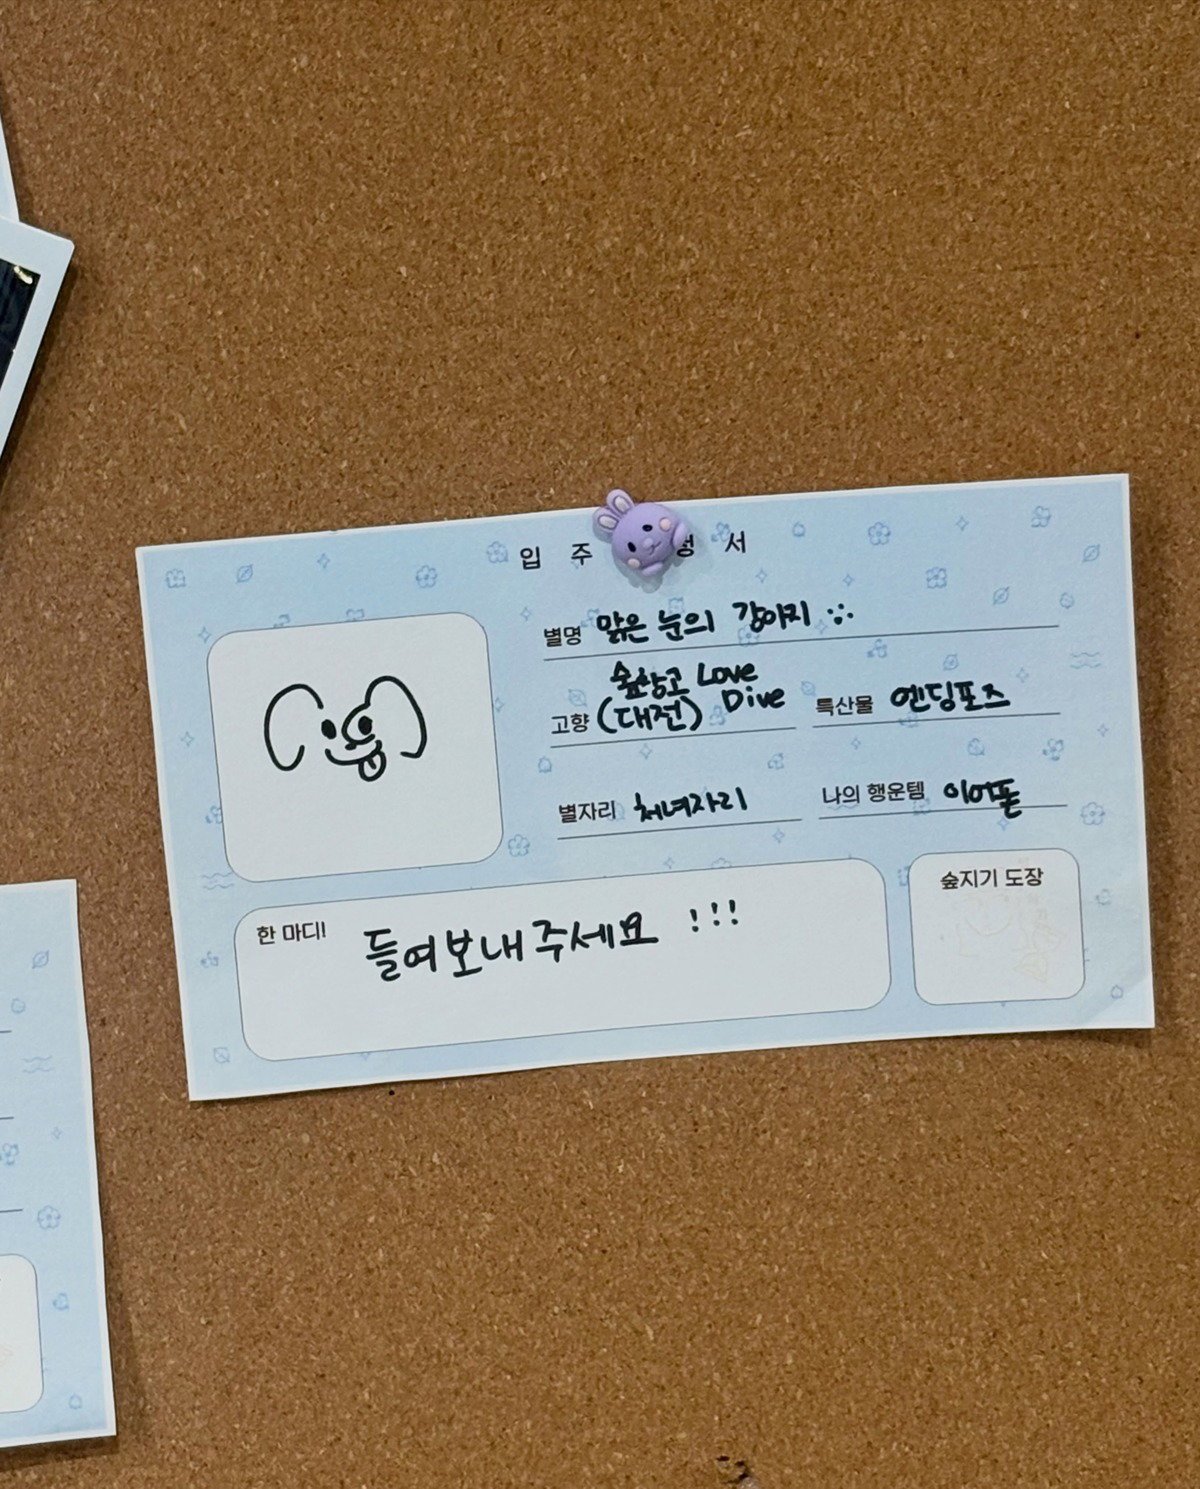 입 주 청 서
별명 맑은 눈의 강아지
숲창고 Love Dive
고향 (대전) 특산물 엔딩포즈
별자리 처녀자리 나의 행운템 이어폰
한 마디! 들여보내주세요 !!!
숲지기 도장